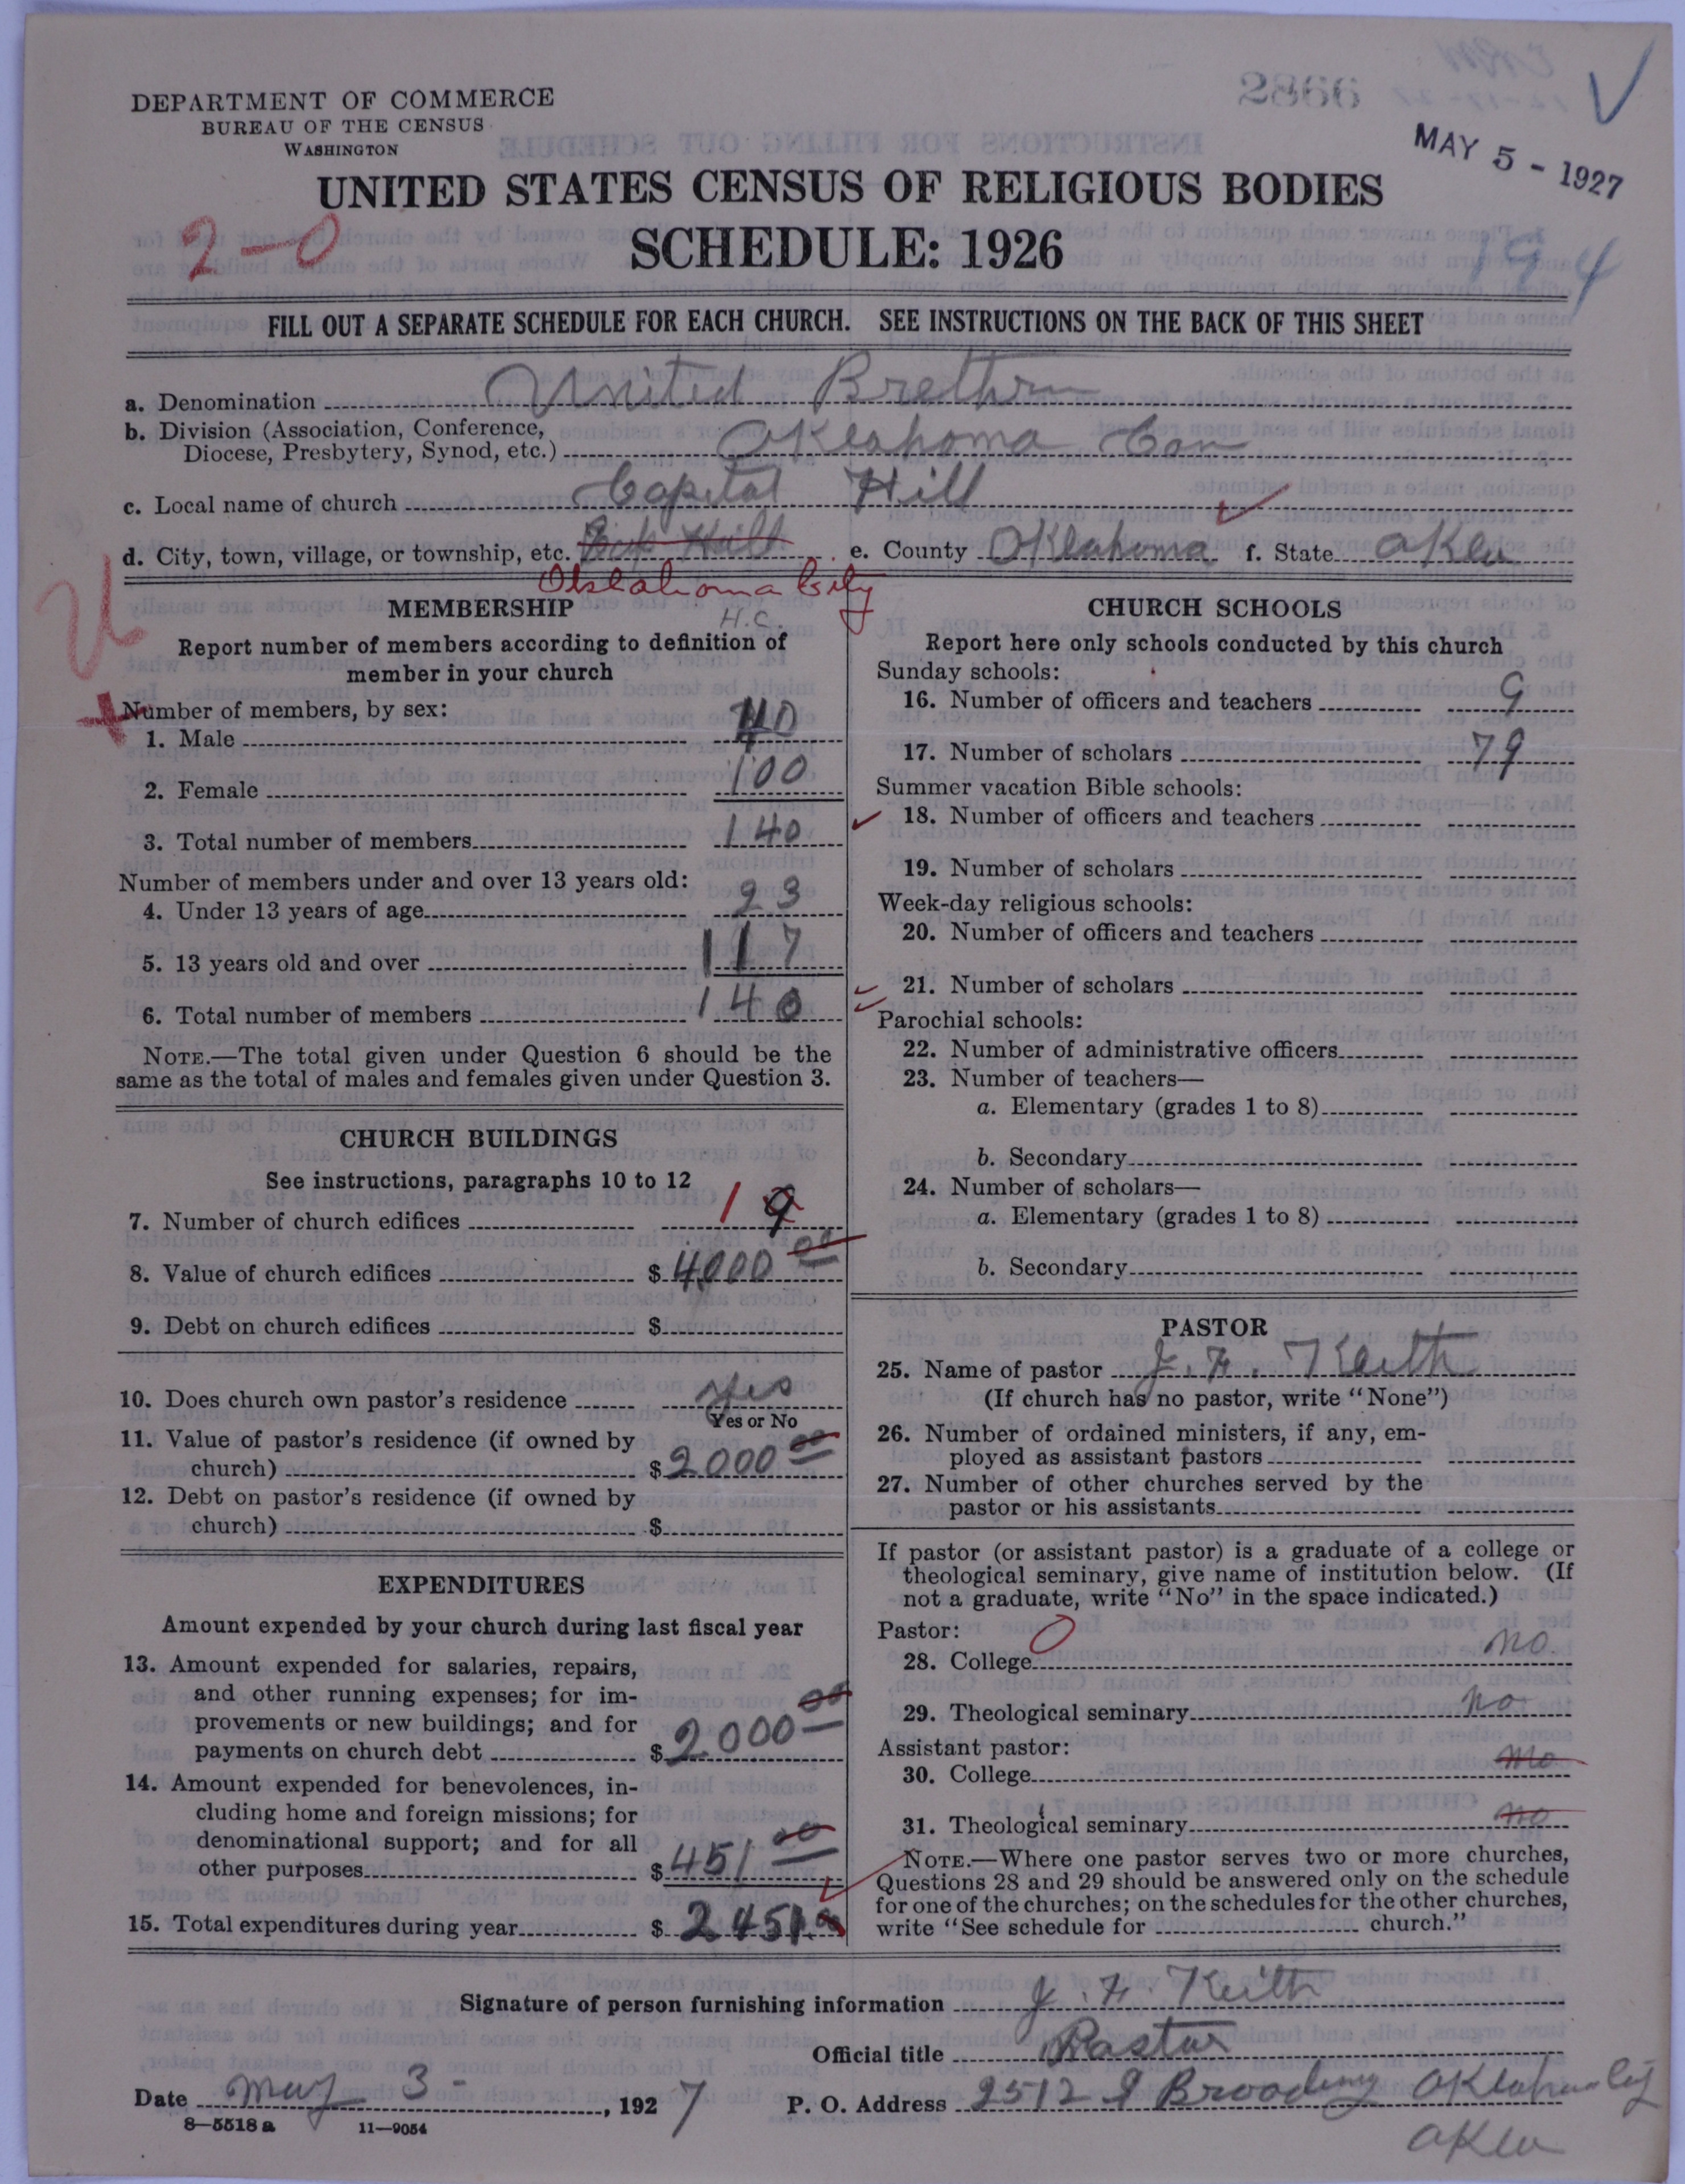 DEPARTMENT OF COMMERCE
BUREAU OF THE CENSUS
WASHINGTON
2866
MAY 5 - 1927
UNITED STATES CENSUS OF RELIGIOUS BODIES
2-0
SCHEDULE: 1926
194
FILL OUT A SEPARATE SCHEDULE FOR EACH CHURCH. SEE INSTRUCTIONS ON THE BACK OF THIS SHEET
a. Denomination United Brethrn
b. Division (Association, Conference,
Diocese, Presbytery, Synod, etc.) Oklahoma Con
c. Local name of church Capital Hill
d. City, town, village, or township, etc. e. County Oklahoma f. State Okla
Oklahoma City
H.C.
MEMBERSHIP
Report number of members according to definition of
member in your church
Number of members, by sex:
1. Male 40
2. Female 100
3. Total number of members 140
Number of members under and over 13 years old:
4. Under 13 years of age 23
5. 13 years old and over 117
6. Total number of members 140
NOTE.—The total given under Question 6 should be the
same as the total of males and females given under Question 3.
CHURCH BUILDINGS
See instructions, paragraphs 10 to 12
7. Number of church edifices 1 9
8. Value of church edifices $ 4000 00
9. Debt on church edifices $
10. Does church own pastor's residence yes
Yes or No
11. Value of pastor's residence (if owned by
church) $ 2000 00
12. Debt on pastor's residence (if owned by
church) $
EXPENDITURES
Amount expended by your church during last fiscal year
13. Amount expended for salaries, repairs,
and other running expenses; for im-
provements or new buildings; and for
payments on church debt $ 2000 00
14. Amount expended for benevolences, in-
cluding home and foreign missions; for
denominational support; and for all
other purposes $ 451 00
15. Total expenditures during year $ 2451
CHURCH SCHOOLS
Report here only schools conducted by this church
Sunday schools:
16. Number of officers and teachers 9
17. Number of scholars 79
Summer vacation Bible schools:
18. Number of officers and teachers
19. Number of scholars
Week-day religious schools:
20. Number of officers and teachers
21. Number of scholars
Parochial schools:
22. Number of administrative officers
23. Number of teachers—
a. Elementary (grades 1 to 8)
b. Secondary
24. Number of scholars—
a. Elementary (grades 1 to 8)
b. Secondary
PASTOR
25. Name of pastor J. F. Keith
(If church has no pastor, write "None")
26. Number of ordained ministers, if any, em-
ployed as assistant pastors
27. Number of other churches served by the
pastor or his assistants
If pastor (or assistant pastor) is a graduate of a college or
theological seminary, give name of institution below. (If
not a graduate, write "No" in the space indicated.)
Pastor: 0
28. College no.
29. Theological seminary no
Assistant pastor:
30. College no
31. Theological seminary no
NOTE.—Where one pastor serves two or more churches,
Questions 28 and 29 should be answered only on the schedule
for one of the churches; on the schedules for the other churches,
write "See schedule for church."
Signature of person furnishing information J. F. Keith
Official title Pastor
Date May 3 - , 1927 P. O. Address 2512 S Broadway Oklahoma City
Okla
8—5518 a 11—9054